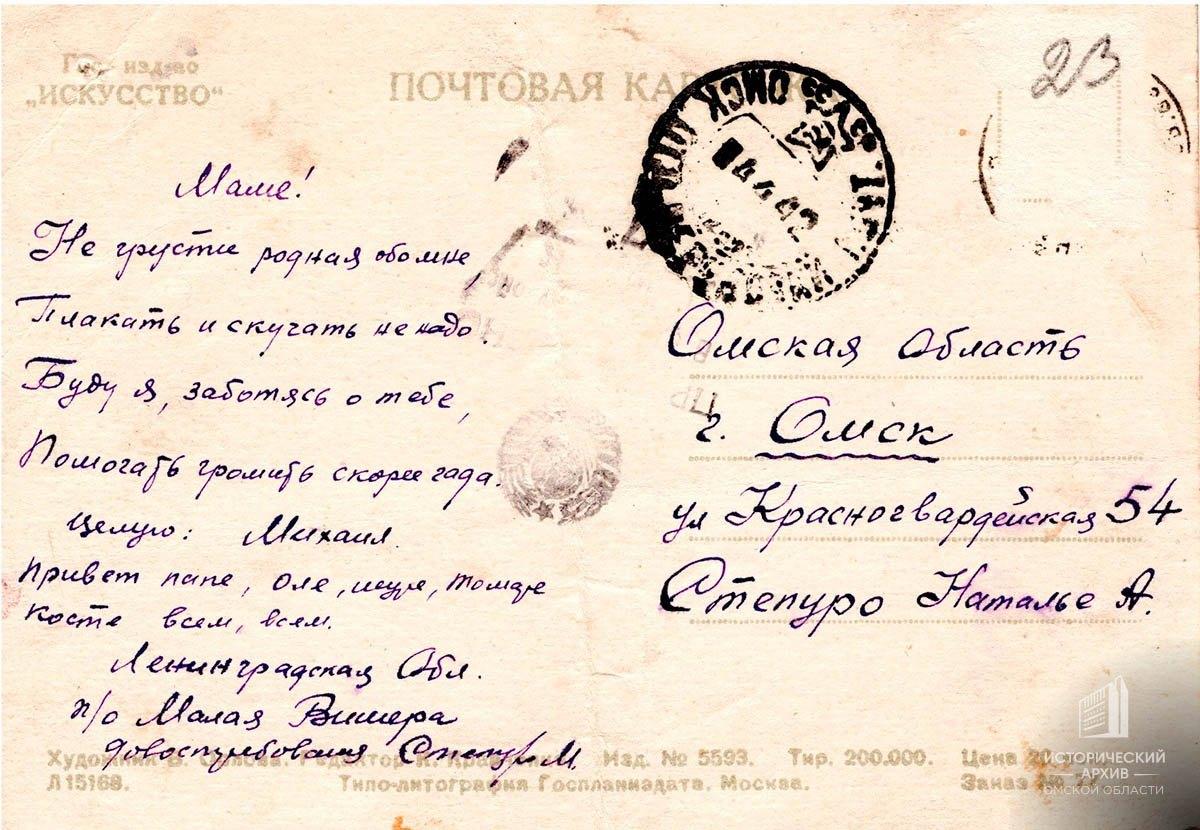 Гос. изд-во
„ИСКУССТВО“
ПОЧТОВАЯ
23
ОМСК
Маме!
Не грусти родная обо мне,
Плакать и скучать не надо.
Буду я, заботясь о тебе,
Помогать громить скорее гада.
Целую: Михаил.
Привет папе, Оле, Тамаре
Косте всем, всем.
Ленинградская Обл.
п/о Малая Вишера
М.
Омская Область
г. Омск
ул Красногвардейская 54
Степуро Наталье А.
Художник В. Редактор Изд. № 5593. Тир. 200.000. Цена
Л15168. Типо-литография Госпланиздата. Москва. Заказ №
ИСТОРИЧЕСКИЙ
АРХИВ
ОМСКОЙ ОБЛАСТИ